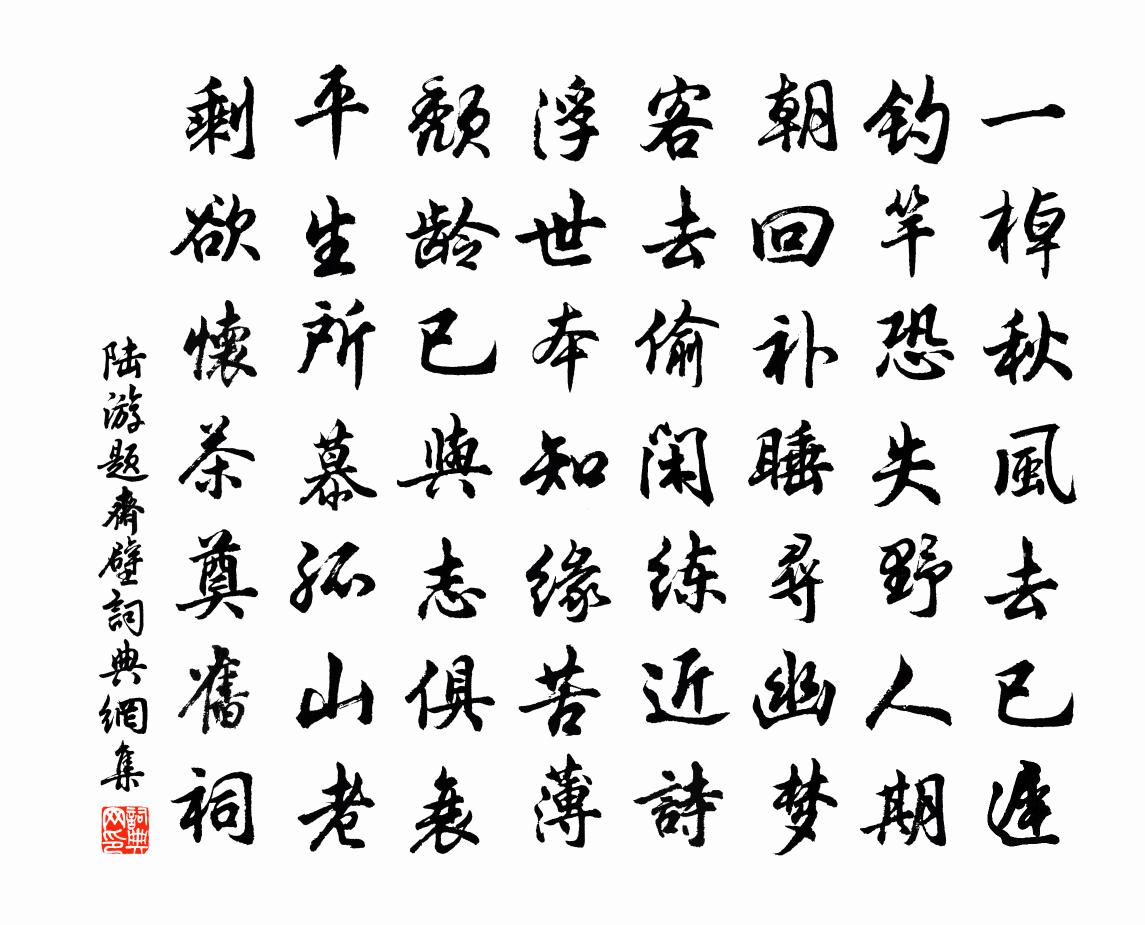 一棹秋風去已遲
钓竿恐失野人期
朝回补睡尋幽梦
客去偷闲练近詩
浮世本知缘苦薄
颓龄已與志俱衰
平生所慕孤山老
剩欲懷茶奠舊祠
陆游题齋壁詞典網集
詞典网印